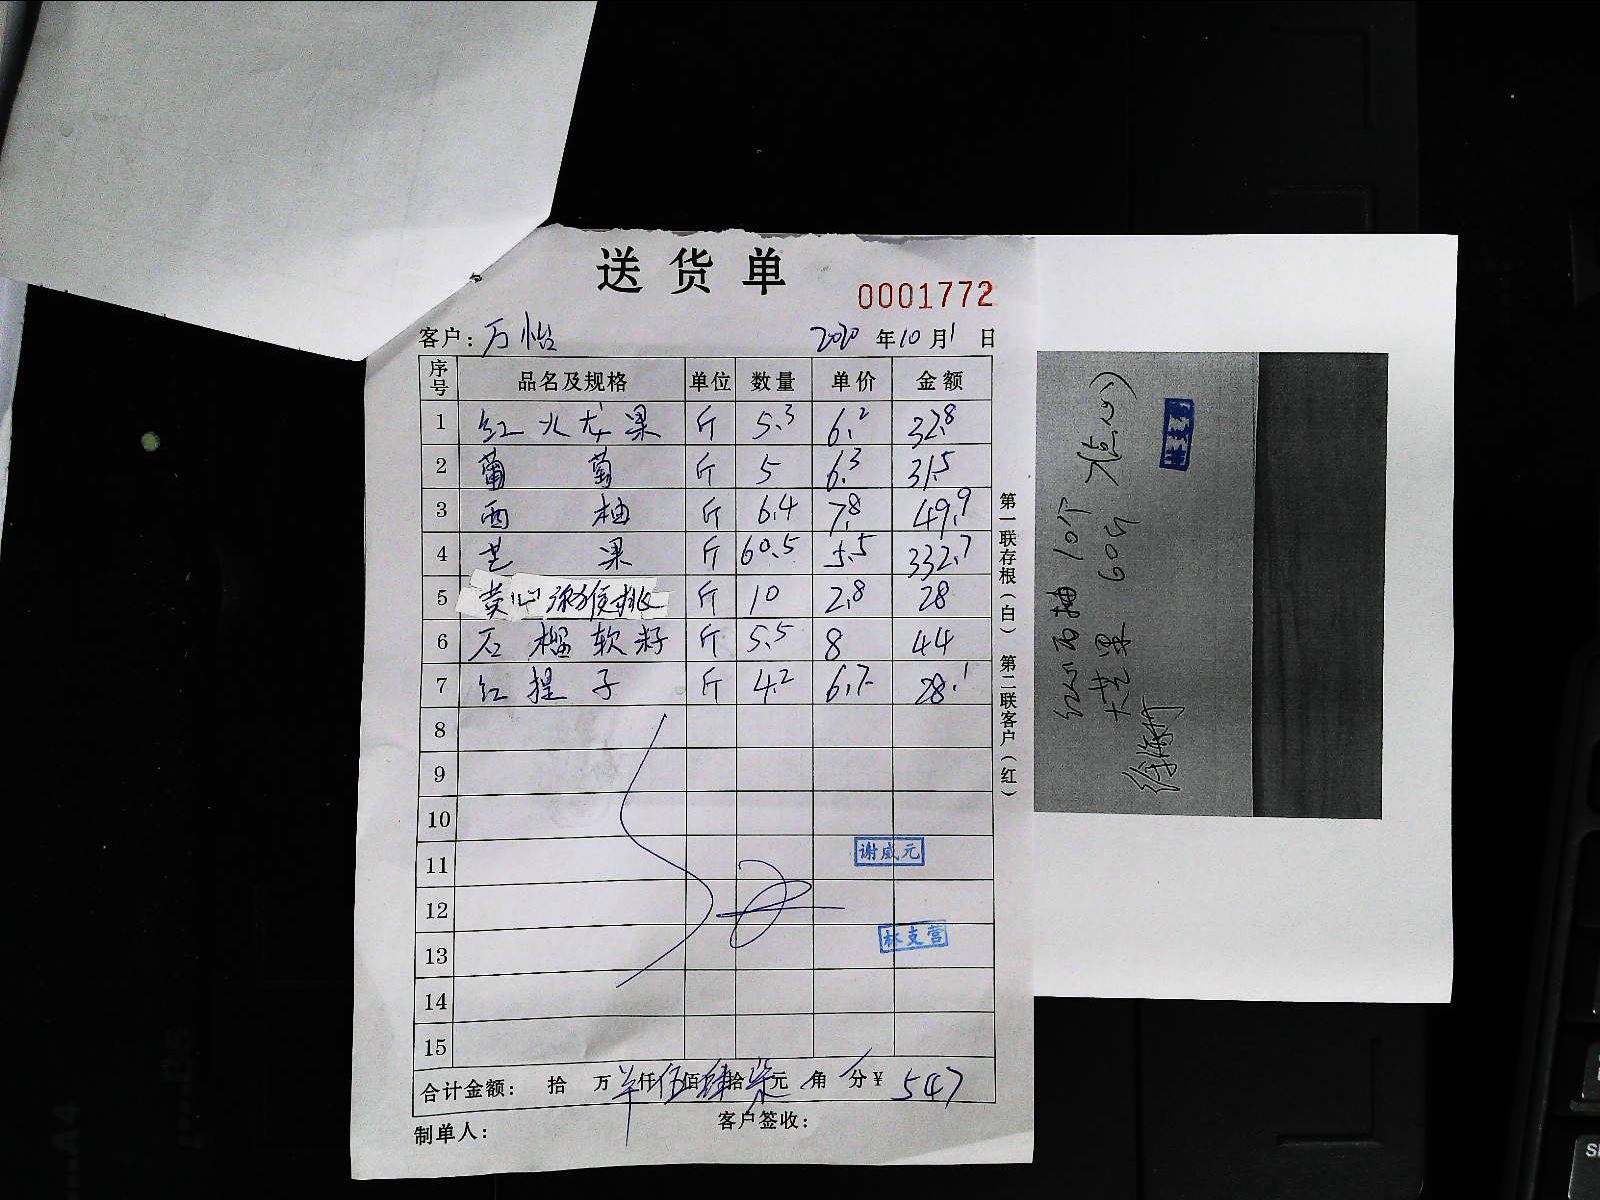 送货单
0001772
客户：万怡 2020年10月1日
序号 品名及规格 单位 数量 单价 金额
1 红火龙果 斤 5.3 6.2 32.8
2 葡萄 斤 5 6.3 31.5
3 西柚 斤 6.4 7.8 49.9
4 芒果 斤 60.5 5.5 332.7
5 黄心猕猴桃 斤 10 2.8 28
6 石榴软籽 斤 5.5 8 44
7 红提子 斤 4.2 6.7 28.1
8
9
10
11
12
13
14
15
谢威元
林支营
合计金额：拾万仟伍佰肆拾柒元角分¥547
制单人： 客户签收：
第一联存根（白） 第二联客户（红）
红心西柚 10个
大芒果 60斤